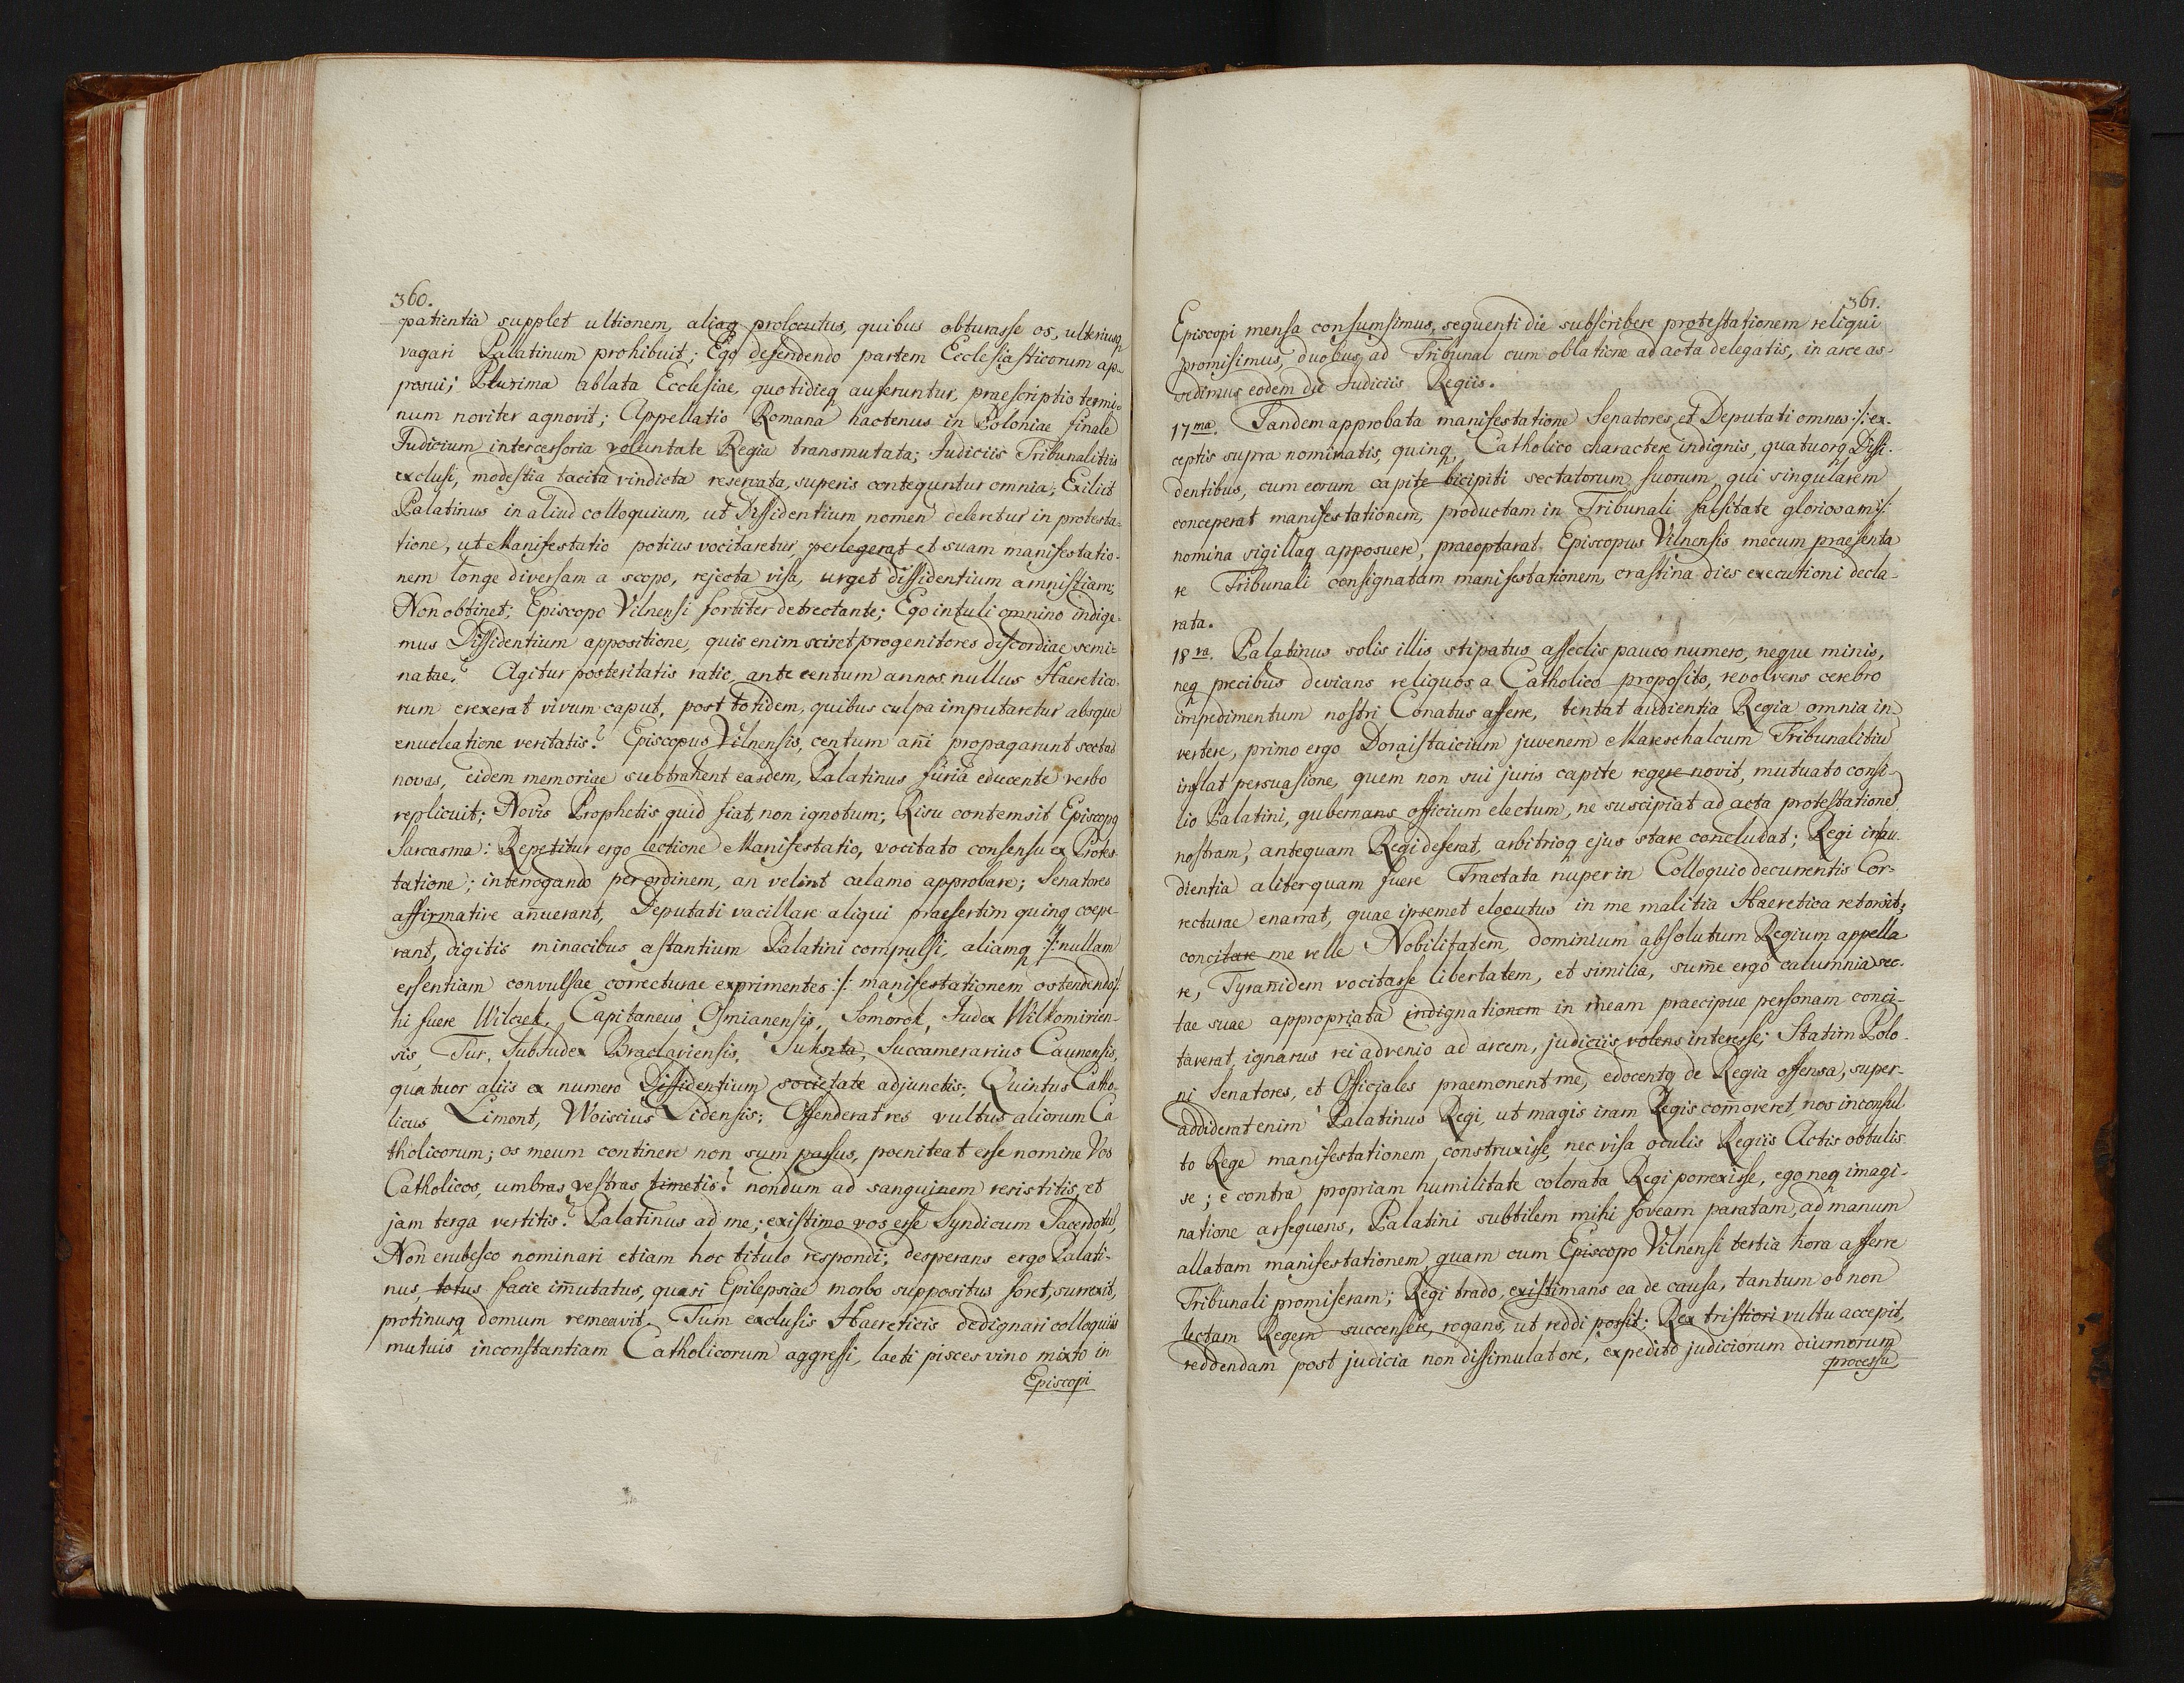 360.
patientia supplet ultionem, aliaq prolocutus, quibus obturasse os, ulteriusq
vagari Palatinum prohibuit; Ego defendendo partem Ecclesiasticorum ap-
posui; Plurima ablata Ecclesiae, quotidieq auferuntur, praescriptio termi-
num noviter agnovit; Appellatio Romana hactenus in Poloniae finale
Judicium intercessoria voluntate Regia transmutata; Judiciis Tribunalitiis
exclusi, modestia tacita vindicta reservata, superis conteguntur omnia; Exiliit
Palatinus in aliud colloquium, ut Dissidentium nomen deleretur in protesta-
tione, ut Manifestatio potius vocitaretur, perlegerat et suam manifestatio-
nem longe diversam a scopo, rejecta visa, urget dissidentium amnistiam;
Non obtinet; Episcopo Vilnensi fortiter detrectante; Ego intuli omnino indige-
mus Dissidentium appositione, quis enim sciret progenitores discordiae semi-
natae? Agitur posteritatis ratio, ante centum annos nullus Haeretico-
rum erexerat vivum caput, post totidem, quibus culpa imputaretur absque
enucleatione veritatis? Episcopus Vilnensis, centum añi propagarunt sectas
novas, eidem memoriae subtrahent easdem, Palatinus furia educente verbo
replicuit; Novis Prophetis quid fiat, non ignotum; Risu contemsit Episcopq
Sarcasma: Repetitur ergo lectione Manifestatio, vocitato consensu ex Protes-
tatione; interrogando per ordinem, an velint calamo approbare; Senatores
affirmative añuerant, Deputati vacillare aliqui praesertim quinq coepe-
rant, digitis minacibus astantium Palatini compulsi, aliamq :/: nullam
essentiam convulsae correcturae exprimentes :/: manifestationem ostendendo/:
hi fuere Wilczek, Capitaneus Osmianensis, Somorok, Judex Wilkomirien-
sis, Tur, SubJudex Braclaviensis, Suhszta, Succamerarius Caunensis,
quatuor aliis ex numero Dissidentium societate adjunctis; Quintus Catho-
licus Limont, Woiscius Lidensis; Offenderat res vultus aliorum Ca-
tholicorum; os meum continere non sum passus, poeniteat esse nomine Vos
Catholicos, umbras vestras timetis? nondum ad sanguinem resistitis, et
jam terga vertitis? Palatinus ad me; existimo vos esse Syndicum Sacerdotu,
Non erubesco nominari etiam hoc titulo respondi; desperans ergo Palati-
nus, totus facie iñmutatus, quasi Epilepsiae morbo suppositus foret, surrexit,
protinusq domum remeavit. Tum exclusis Haereticis dedignari colloquiis
mutuis inconstantiam Catholicorum aggressi, laeti pisces vino mixto in
Episcopi
361.
Episcopi mensa consumsimus, sequenti die subscribere protestationem reliqui
promisimus, duobus ad Tribunal cum oblatione ad acta delegatis, in arce as-
sedimus eodem die Judiciis Regiis.
17ma. Tandem approbata manifestatione Senatores et Deputati omnes :/: ex-
ceptis supra nominatis, quinq, Catholico charactere indignis, quatuorq Dissi-
dentibus, cum eorum capite bicipiti sectatorum suorum, qui singularem
conceperat manifestationem, productam in Tribunali falsitate gloriosam :/:
nomina sigillaq apposuere, praeoptarat Episcopus Vilnensis mecum praesenta
re Tribunali consignatam manifestationem, crastina dies executioni decla-
rata.
18va. Palatinus solis illis stipatus asseclis pauco numero, neque minis,
neq precibus devians reliquos a Catholico proposito, revolvens cerebro
impedimentum nostri Conatus asserre, tentat audientia Regia omnia in-
vertere, primo ergo Doraistaicium juvenem Mareschalcum Tribunalitiu
inflat persuasione, quem non sui juris capite regere novit, mutuato consi-
lio Palatini, gubernans officium electum, ne suscipiat ad acta protestatione
nostram, antequam Regi deferat, arbitrioq ejus stare concludat; Regi in au-
dientia aliter quam fuere Tractata nuper in Colloquio decurrentis Cor-
recturae enarrat, quae ipsemet elocutus in me malitia Haeretica retorsit;
concitare me velle Nobilitatem, dominium absolutum Regium appella
re, Tyrañidem vocitasse libertatem, et similia, sum̃e ergo calumnia sec-
tae suae appropriata indignationem in meam praecipue personam conci-
taverat, ignarus rei advenio ad arcem, judiciis volens interesse; Statim Polo-
ni Senatores, et Officiales praemonent me, edocentq de Regia offensa, super-
addiderat enim Palatinus Regi, ut magis iram Regis com̃overet, nos inconsul-
to Rege manifestationem construxisse, nec visa oculis Regiis Actis obtulis-
se; e contra propriam humilitate colorata Regi porrexisse, ego neq imagi-
natione assequens, Palatini subtilem mihi foveam paratam, ad manum
allatam manifestationem, quam cum Episcopo Vilnensi tertia hora afferre
Tribunali promiseram; Regi trado, existimans ea de causa, tantum ob non
lectam Regem succensere, rogans, ut reddi possit; Rex tristiori vultu accepit,
reddendam post judicia non dissimulatore, expedito judiciorum diurnorum
processu